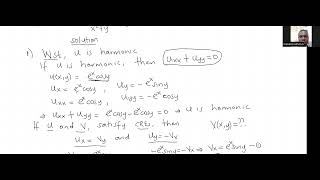 solution
1) WST, u is harmonic
If u is harmonic, then Uxx + Uyy = 0
u(x,y) = e^x cosy
Ux = e^x cosy, Uy = -e^x siny
Uxx = e^x cosy, Uyy = -e^x cosy
⇒ Uxx + Uyy = e^x cosy - e^x cosy = 0 ⇒ u is harmonic
If u and V, satisfy CREs, then V(x,y) = ??
Ux = Vy and Uy = -Vx
-e^x siny = -Vx ⇒ Vx = e^x siny - ①